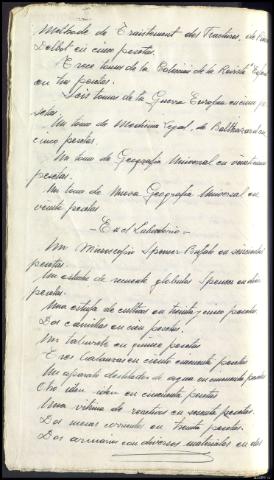 Methode de Traitement des Fractures, de
Delbet en cinco pesetas.
Trece tomos de la Coleccion de la Revista
en tres pesetas.
Seis tomos de la Guerra Europea en cinco pe-
setas.
Un tomo de Medicina Legal, de Balthazard en
cinco pesetas.
Un tomo de Geografia Universal en veinticinco
pesetas.
Un tomo de Nueva Geografia Universal en
veinte pesetas.
- En el Laboratorio -
Un Microscopio Spencer Bufalo en seiscientas
pesetas.
Un estuche de recuento globular Spencer en
pesetas.
Una estufa de cultivos en treinta y cinco pesetas.
Dos camillas en cien pesetas.
Un taburete en quince pesetas.
Tres balanzas en ciento cincuenta pesetas.
Un aparato destilador de agua en cincuenta pesetas
Otro idem idem en cincuenta pesetas
Una vitrina de reactivos en sesenta pesetas.
Dos mesas corrientes en treinta pesetas.
Dos armarios con diversos materiales en dos